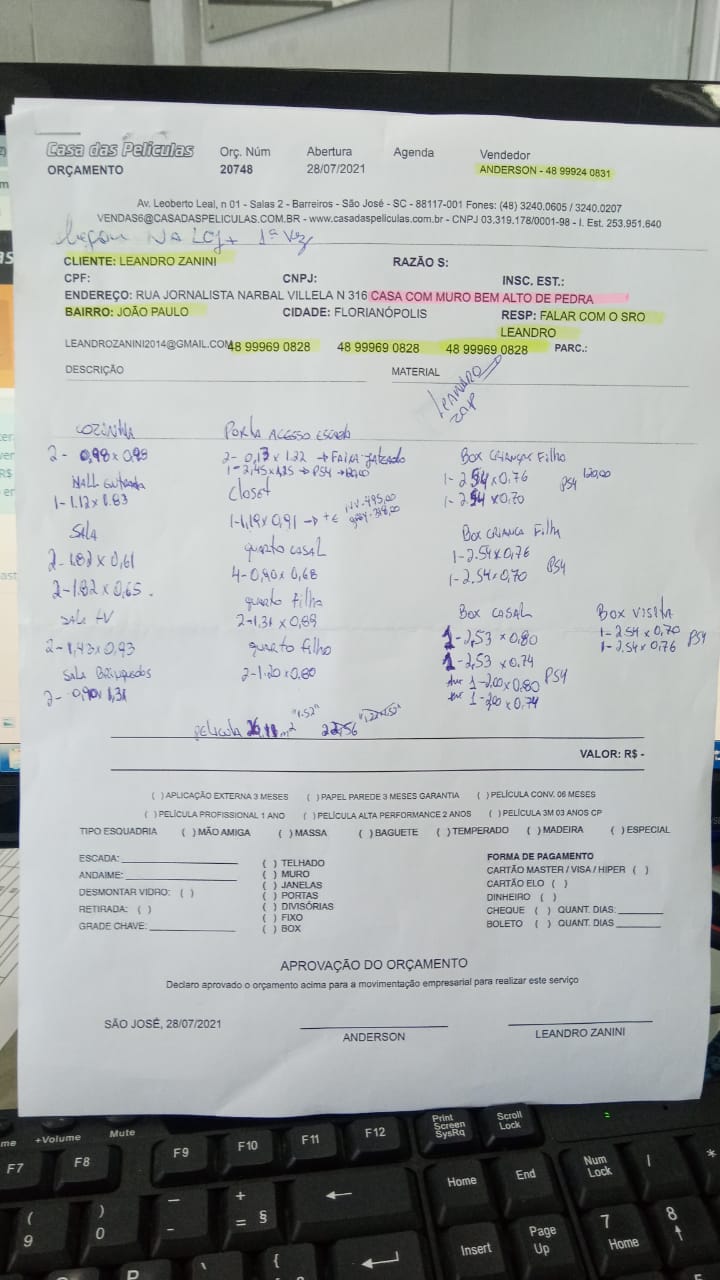 Casa das Películas
ORÇAMENTO
Orç. Núm
20748
Abertura
28/07/2021
Agenda
Vendedor
ANDERSON - 48 99924 0831
Av. Leoberto Leal, n 01 - Salas 2 - Barreiros - São José - SC - 88117-001 Fones: (48) 3240.0605 / 3240.0207
VENDAS6@CASADASPELICULAS.COM.BR - www.casadaspeliculas.com.br - CNPJ 03.319.178/0001-98 - I. Est. 253.951.640
NA LOJA 1ª Vez
CLIENTE: LEANDRO ZANINI
RAZÃO S:
CPF:
CNPJ:
INSC. EST.:
ENDEREÇO: RUA JORNALISTA NARBAL VILLELA N 316 CASA COM MURO BEM ALTO DE PEDRA
BAIRRO: JOÃO PAULO
CIDADE: FLORIANÓPOLIS
RESP: FALAR COM O SRO
LEANDRO
LEANDROZANINI2014@GMAIL.COM
48 99969 0828
48 99969 0828
48 99969 0828
PARC.:
DESCRIÇÃO
MATERIAL
LEANDRO
ZAP
COZINHA
2- 0,98 x 0,98
HALL entrada
1- 1.12 x 1.83
SALA
2-1.82 x 0,61
2-1.82 x 0,65.
SALA TV
2-1,43 x 0,93
SALA Brinquedos
2- 0,90 x 1,31
PORTA ACESSO ESCADA
2- 0,13 x 1.22 → FAIXA JATEADO
closet
1-1,19 x 0,91
INV-495,00
quarto casal
4-0,90 x 0,68
quarto filha
2-1,31 x 0,89
quarto filho
2-1.20 x 0,80
Box CRIANÇA Filho
1-2.54 x 0,76
1-2.54 x 0,70
PS4
120,00
Box CRIANÇA Filha
1-2.54 x 0,76
1-2.54 x 0,70
PS4
BOX CASAL
1-2,53 x 0,80
1-2,53 x 0.74
1-2,00 x 0,80
1-2,00 x 0,74
PS4
BOX VISITA
1-2.54 x 0,70
1-2.54 x 0,76
PS4
película
m²
"1.52"
VALOR: R$ -
( ) APLICAÇÃO EXTERNA 3 MESES ( ) PAPEL PAREDE 3 MESES GARANTIA ( ) PELÍCULA CONV. 06 MESES
( ) PELÍCULA PROFISSIONAL 1 ANO ( ) PELÍCULA ALTA PERFORMANCE 2 ANOS ( ) PELÍCULA 3M 03 ANOS CP
TIPO ESQUADRIA ( ) MÃO AMIGA ( ) MASSA ( ) BAGUETE ( ) TEMPERADO ( ) MADEIRA ( ) ESPECIAL
ESCADA:
ANDAIME:
DESMONTAR VIDRO: ( )
RETIRADA: ( )
GRADE CHAVE:
( ) TELHADO
( ) MURO
( ) JANELAS
( ) PORTAS
( ) DIVISÓRIAS
( ) FIXO
( ) BOX
FORMA DE PAGAMENTO
CARTÃO MASTER / VISA / HIPER ( )
CARTÃO ELO ( )
DINHEIRO ( )
CHEQUE ( ) QUANT. DIAS:
BOLETO ( ) QUANT. DIAS
APROVAÇÃO DO ORÇAMENTO
Declaro aprovado o orçamento acima para a movimentação empresarial para realizar este serviço
SÃO JOSÉ, 28/07/2021
ANDERSON
LEANDRO ZANINI
+Volume
Mute
F7
F8
F9
F10
F11
F12
Print
Screen
SysRq
Scroll
Lock
Home
End
Num
Lock
/
*
( 9
) 0
+ = §
{
Insert
Page
Up
7
Home
8